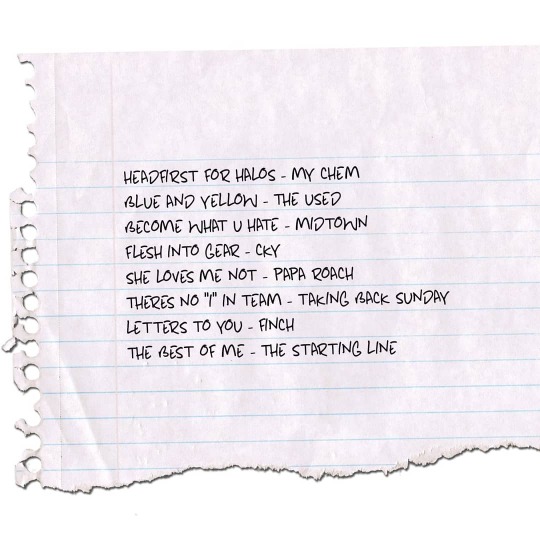 HEADFIRST FOR HALOS - MY CHEM
BLUE AND YELLOW - THE USED
BECOME WHAT U HATE - MIDTOWN
FLESH INTO GEAR - CKY
SHE LOVES ME NOT - PAPA ROACH
THERES NO "I" IN TEAM - TAKING BACK SUNDAY
LETTERS TO YOU - FINCH
THE BEST OF ME - THE STARTING LINE